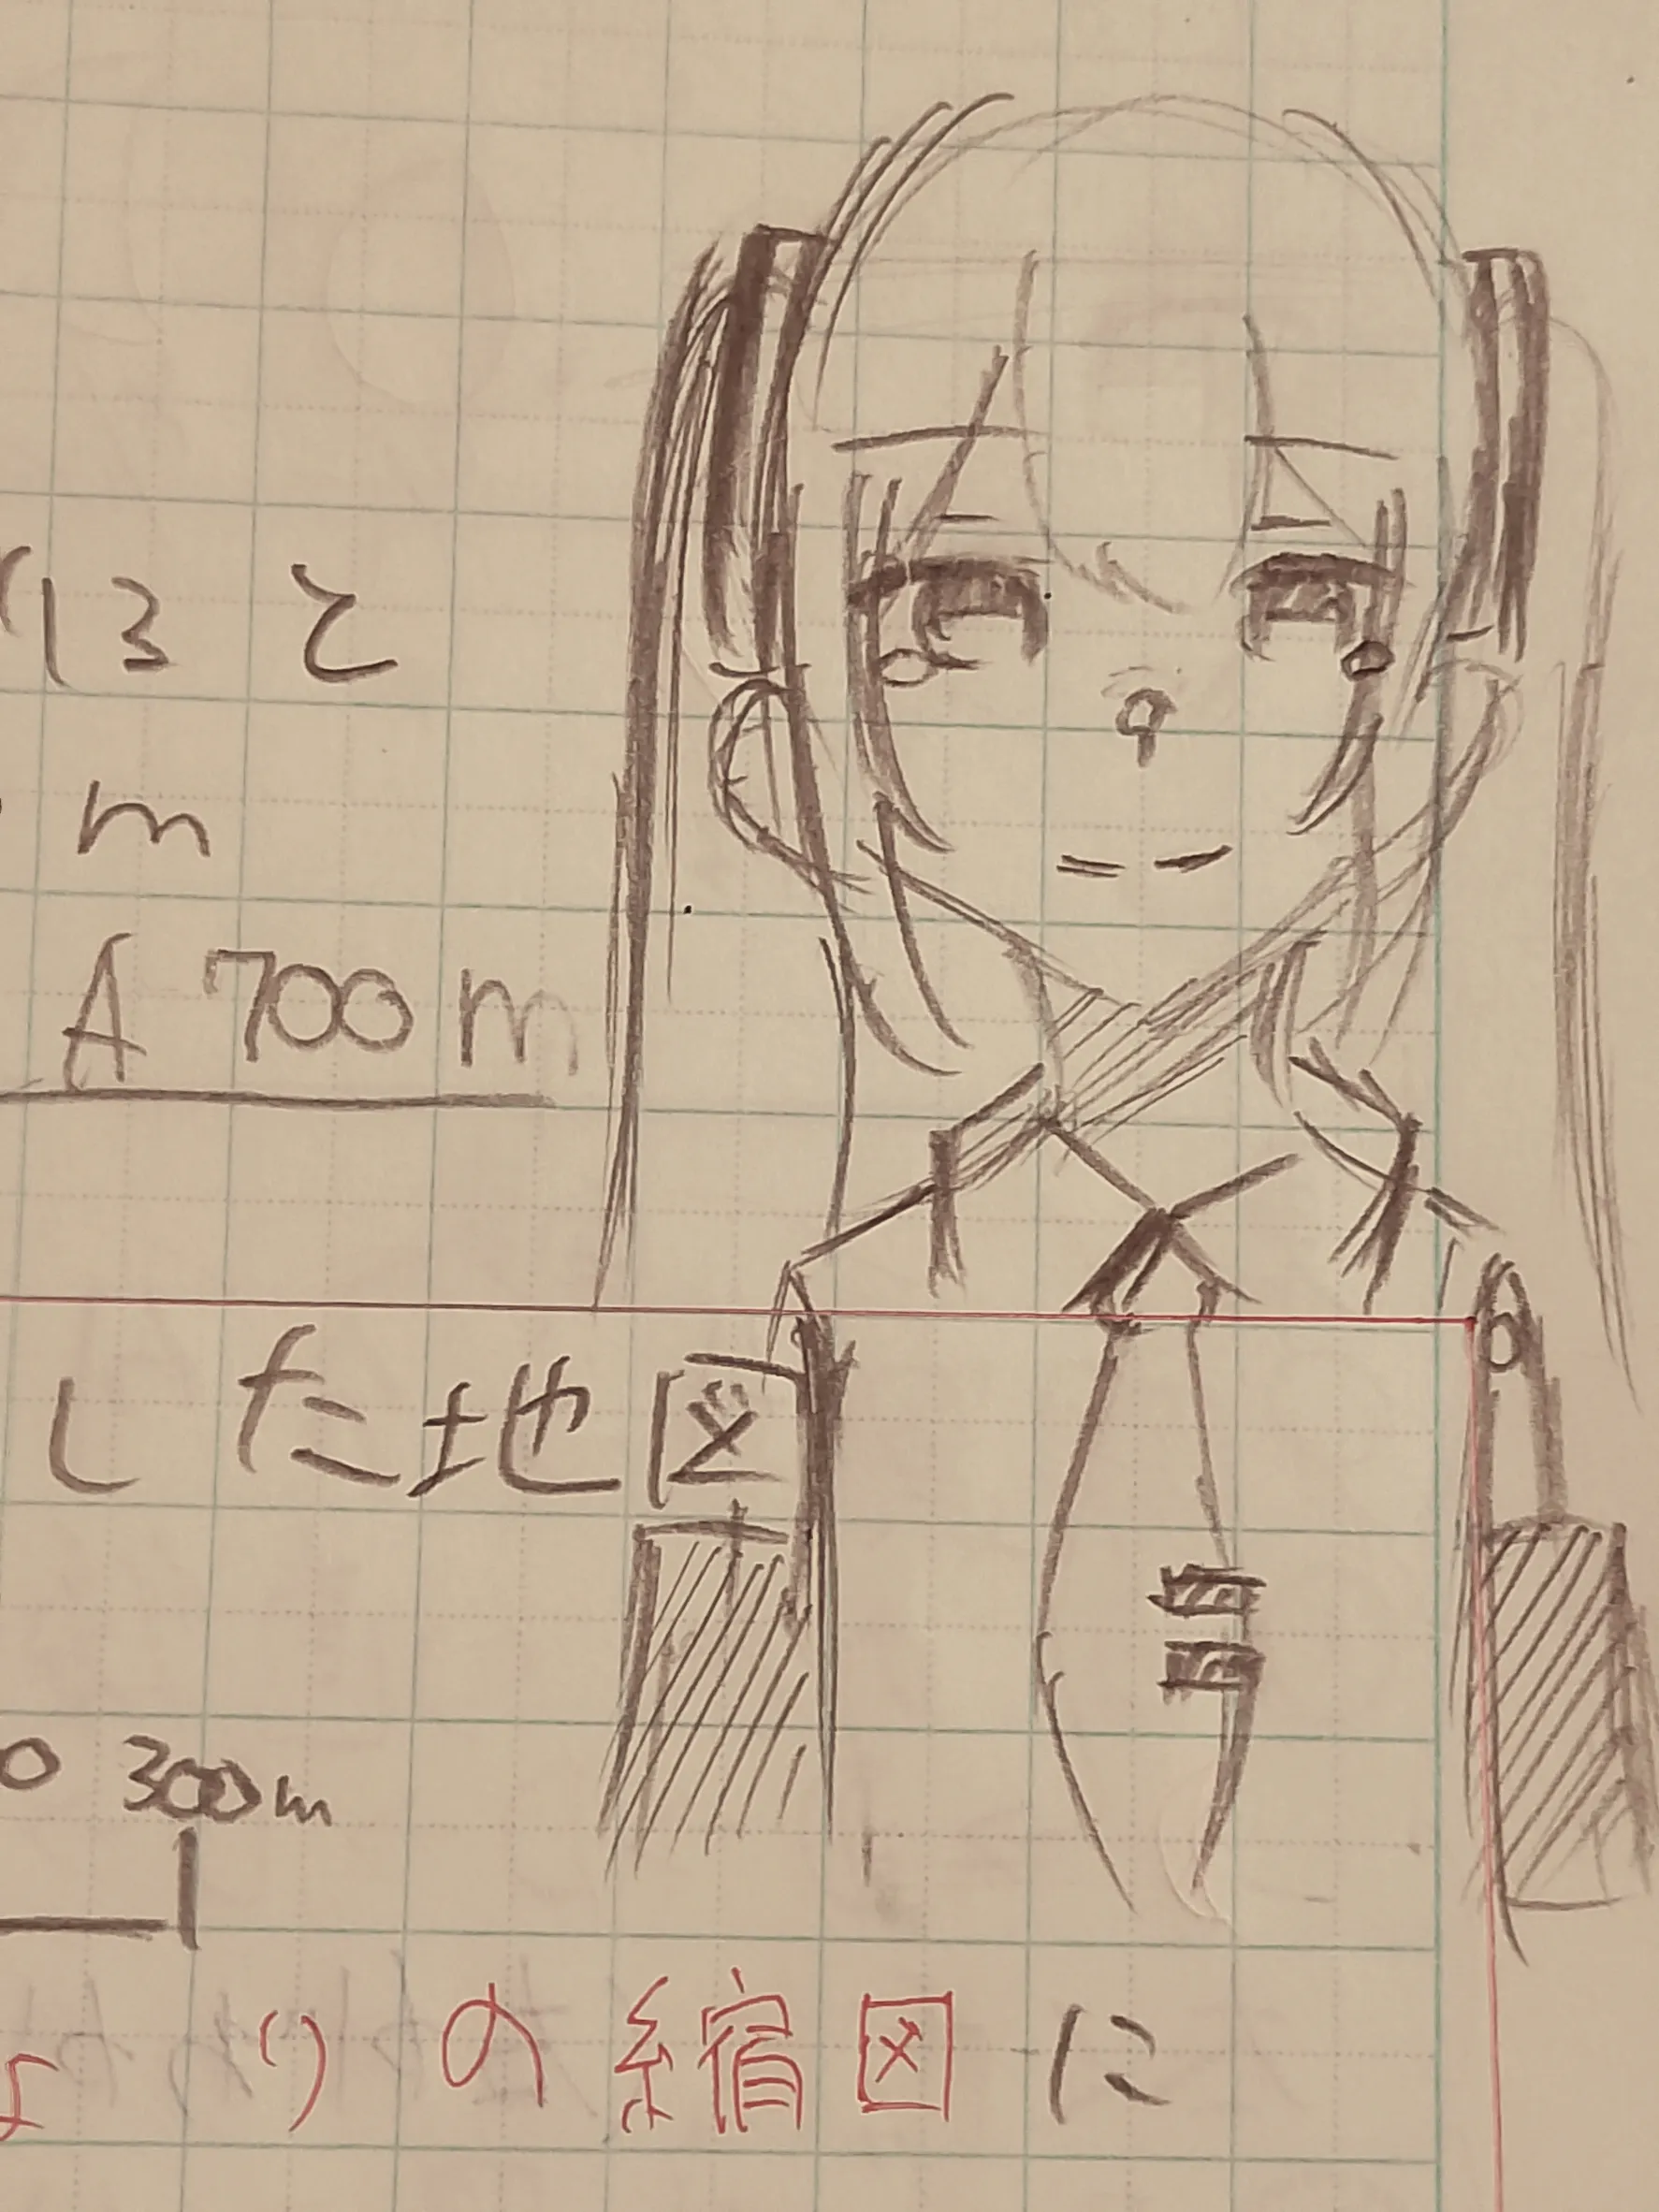 はると
m
A 700m
した地図
0 300m
りの縮図に